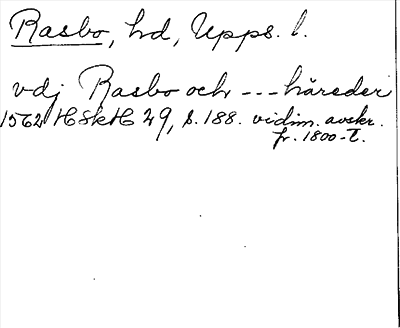 Rasbo, hd, Upps. l.
vdj Rasbo och --- häreder
1562 HSkH 29, s. 188. vidim. avskr.
fr. 1800-t.